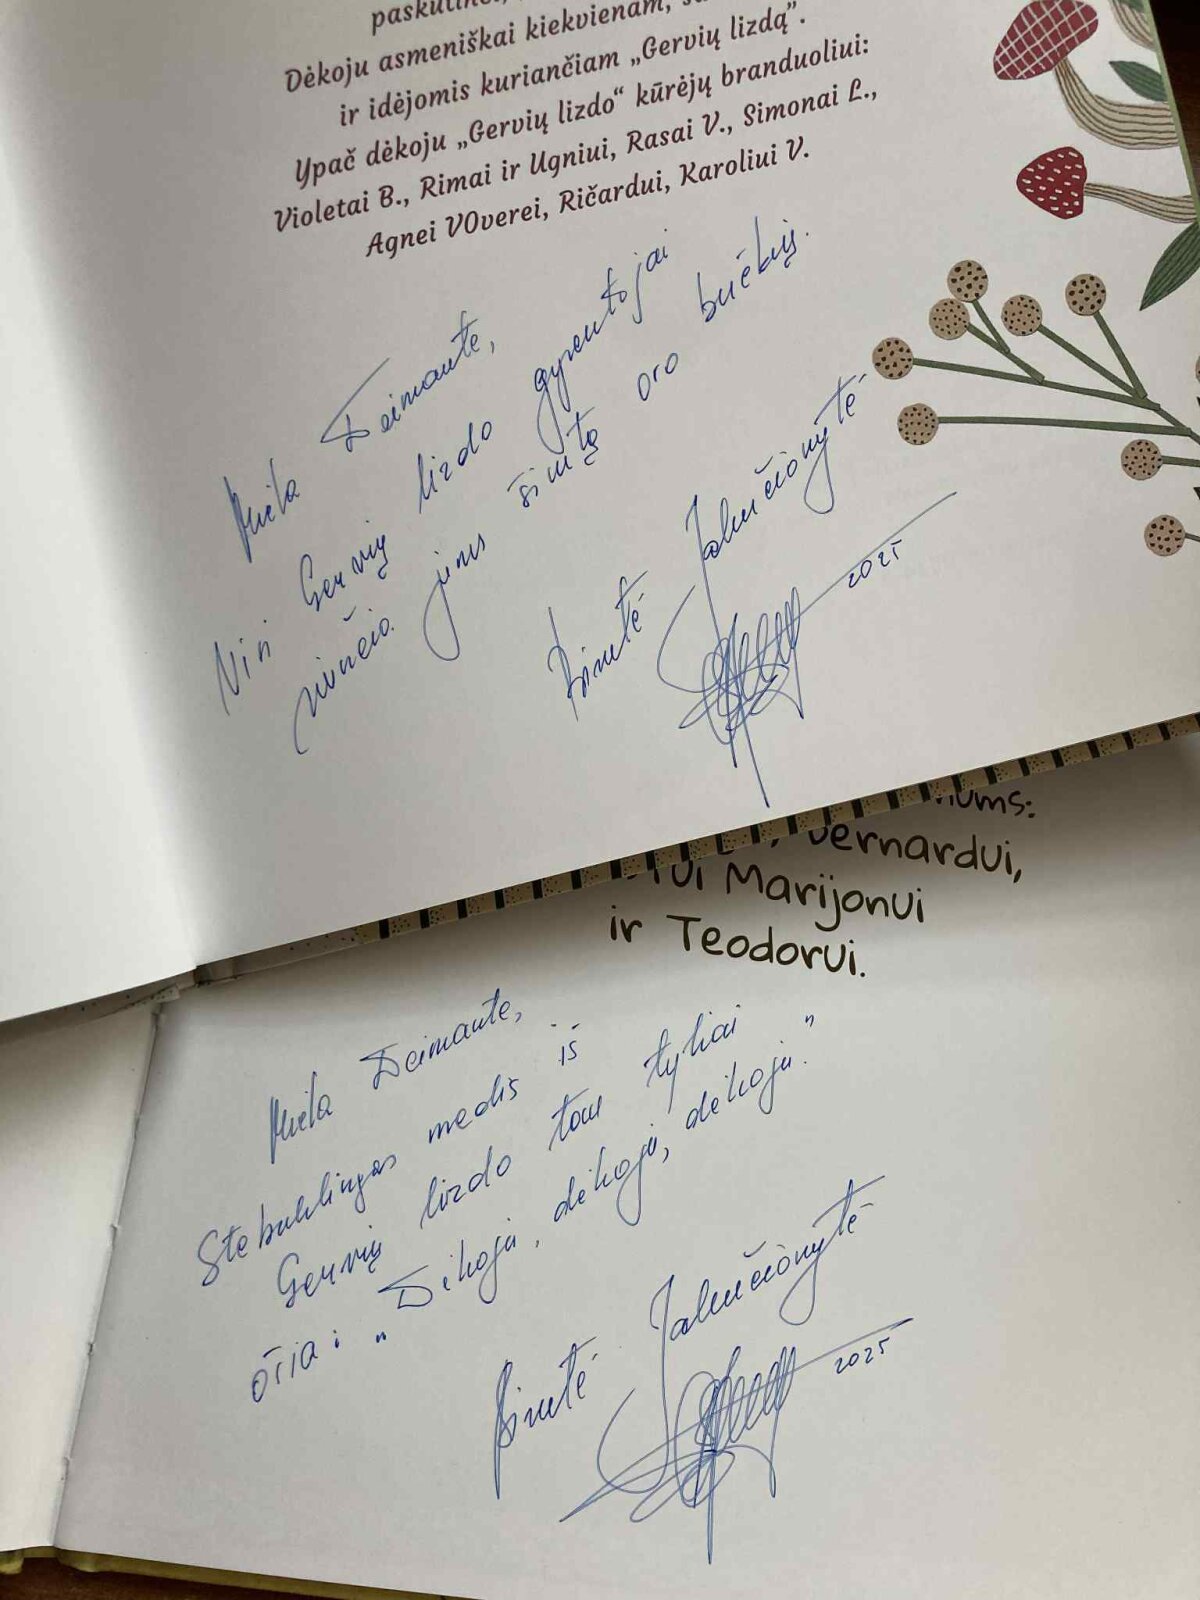 Dėkoju asmeniškai kiekvienam,
ir idėjomis kuriančiam „Gervių lizdą".
Ypač dėkoju „Gervių lizdo“ kūrėjų branduoliui:
Violetai B., Rimai ir Ugniui, Rasai V., Simonai L.,
Agnei VOverei, Ričardui, Karoliui V.
Miela Deimante,
Visi Gervių lizdo gyventojai
siunčia jums šimtą oro bučkių.
Birutė Jakučionytė
2025
Bernardui,
Marijonui
ir Teodorui.
Miela Deimante,
Stebuklingas medis iš
Gervių lizdo tau tyliai
ošia: „Dėkoju, dėkoju, dėkoju."
Birutė Jakučionytė
2025